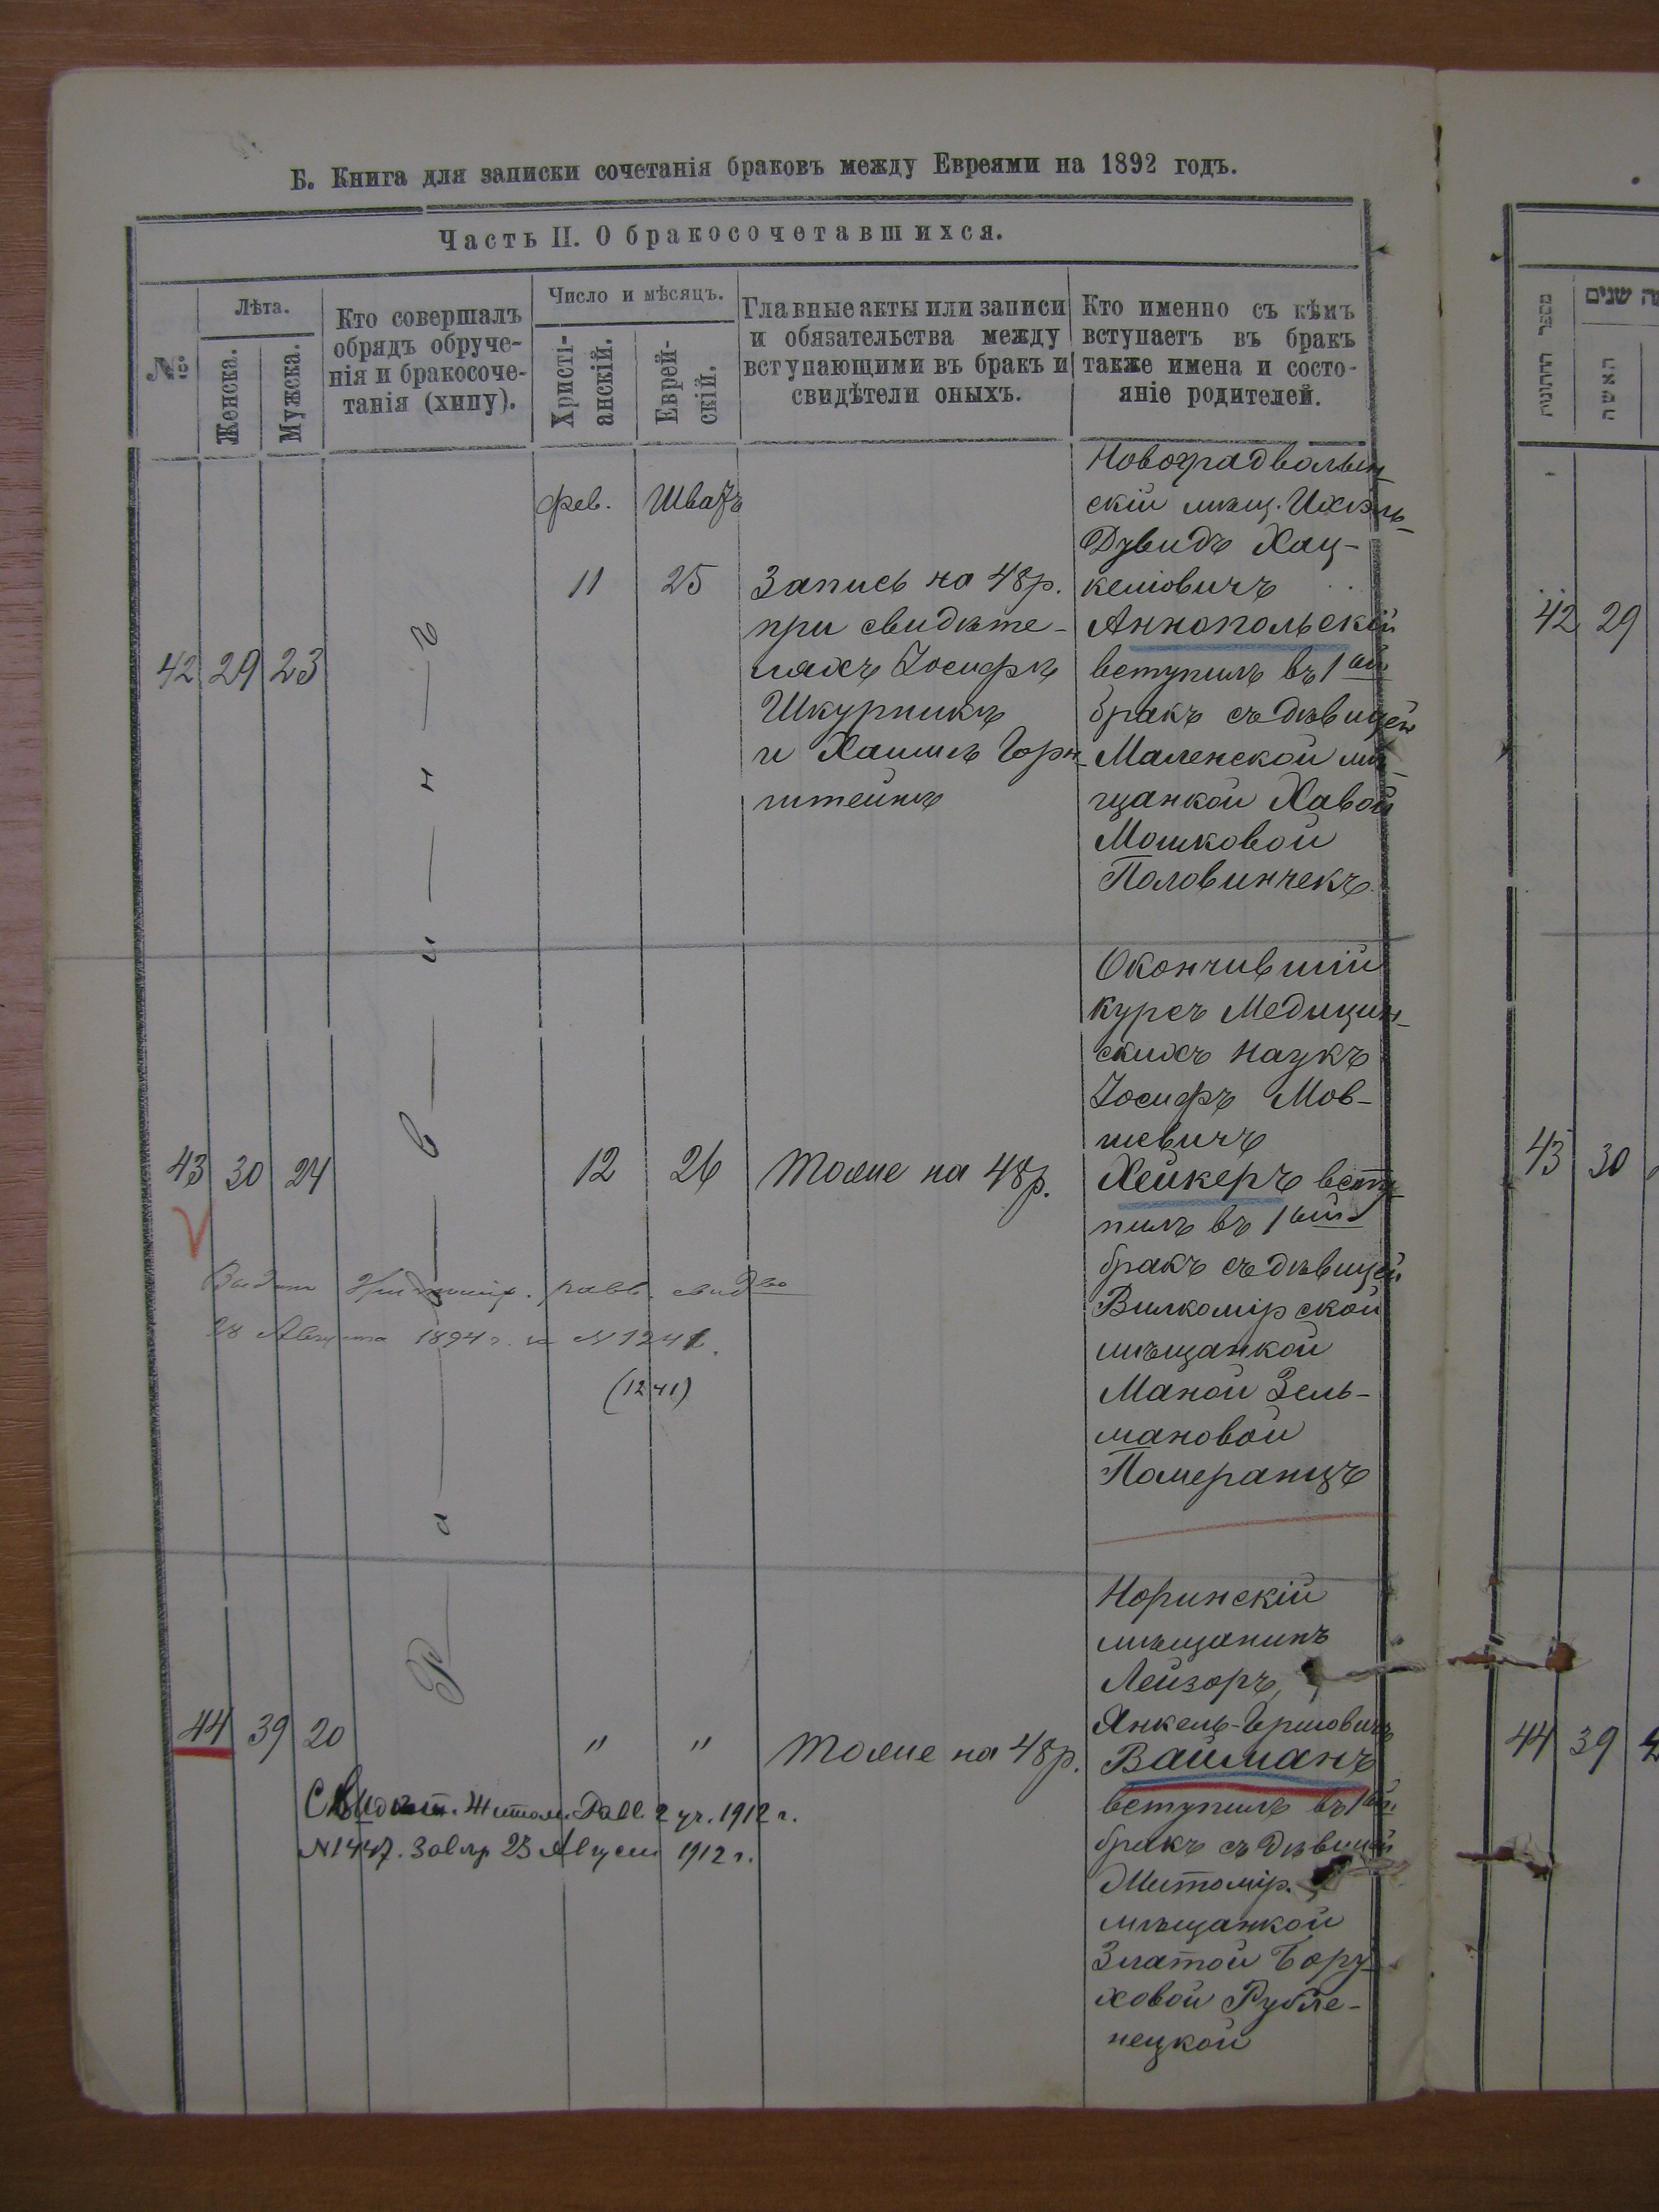 Б. Книга для записки сочетанія браковъ между Евреями на 1892 годъ.
Часть II. О бракосочетавшихся.
№
Лѣта.
Женска.
Мужска.
Кто совершалъ
обрядъ обруче-
нія и бракосоче-
танія (хипу).
Число и мѣсяцъ.
Христі-
анскій.
Еврей-
скій.
Главные акты или записи
и обязательства между
вступающими въ бракъ и
свидѣтели оныхъ.
Кто именно съ кѣмъ
вступаетъ въ бракъ
также имена и состо-
яніе родителей.
Р а в и н ъ
42 29 23
фев. Шватъ
11 25
Запись на 48 р.
при свидѣте-
ляхъ Іосифъ
Шкурникъ
и Хаимъ Горн-
штейнъ
Новоградволын-
скій мѣщ. Ихэль-
Дувидъ Хац-
келіовичъ
Аннопольскій
вступилъ въ 1ый
бракъ съ дѣвицей
Маленской мѣ-
щанкой Хавой
Мошковой
Половинчекъ
43 30 24
12 26
Тоже на 48 р.
Окончившій
курсъ Медицин-
скихъ Наукъ
Іосифъ Мов-
шевичъ
Хейкеръ всту-
пилъ въ 1ый
бракъ съ дѣвицей
Вилкомірской
мѣщанкой
Маной Зель-
мановой
Померанцъ
равв. свид-во
28 Августа 1894 г. за №1241.
(1241)
44 39 20
" "
Тоже на 48 р.
Норинскій
мѣщанинъ
Лейзоръ,
Янкель-Гершовичъ
Вайманъ
вступилъ въ 1ый
бракъ съ дѣвицей
Житомір.
мѣщанкой
Златой Бору-
ховой Рубле-
нецкой
Свидѣт. Житом. Равв. 2 уч. 1912 г.
№1447. 23 Августа 1912 г.
מספר החתונות
שנים
האשה
42 29
43 30
44 39